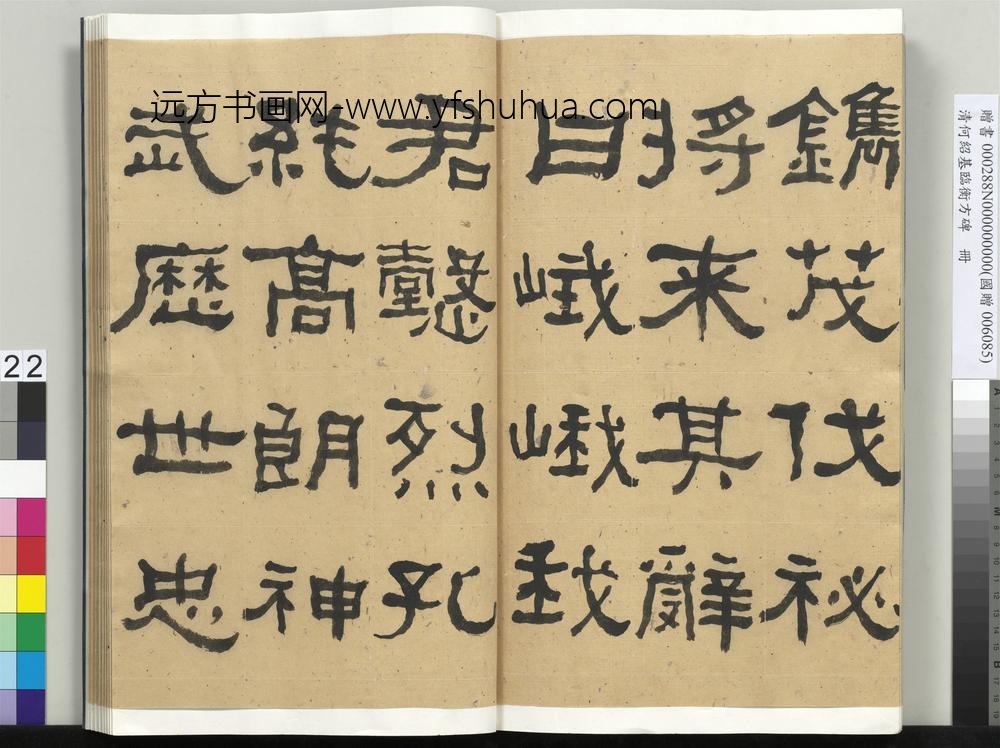 远方书画网-www.yfshuhua.com
鐫茂伐祕
將来其辭
曰峨峨我
君懿烈孔
純高朗神
武歷世忠
贈書 000288N000000000(國贈 006085)
清何紹基臨衡方碑 冊
22